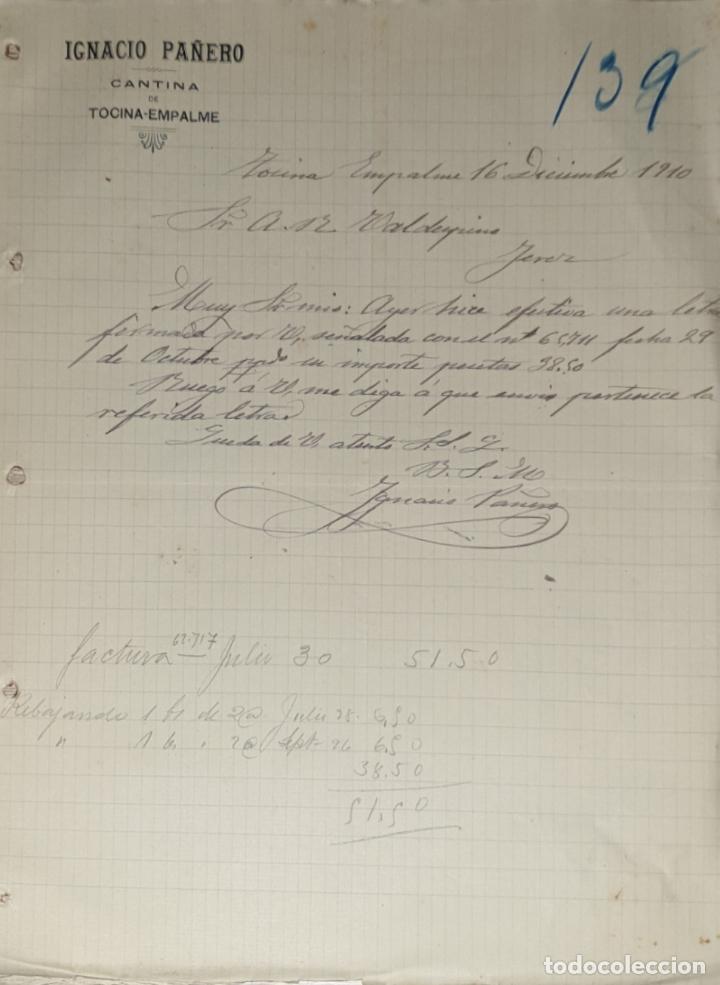 IGNACIO PAÑERO
CANTINA
DE
TOCINA-EMPALME
139
Tocina Empalme 16 Diciembre 1910
Sr. A. R. Valdespino
Jerez
Muy Sr. mio: Ayer hice efectiva una letra
firmada por V, señalada con el nº 65,711 fecha 29
de Octubre ppdo su importe pesetas 38.50
Ruego á V, me diga á que envio pertenece la
referida letra
Queda de V, atento S. S. Q.
B. S. M
Ignacio Pañero
factura 62.717 Julio 30 51.50
Rebajando 1 bl de 2@ Julio 25. 6,50
" 1 b. " 2@ Sept- 26 6,50
38.50
51,50
todocoleccion
todocoleccion.net